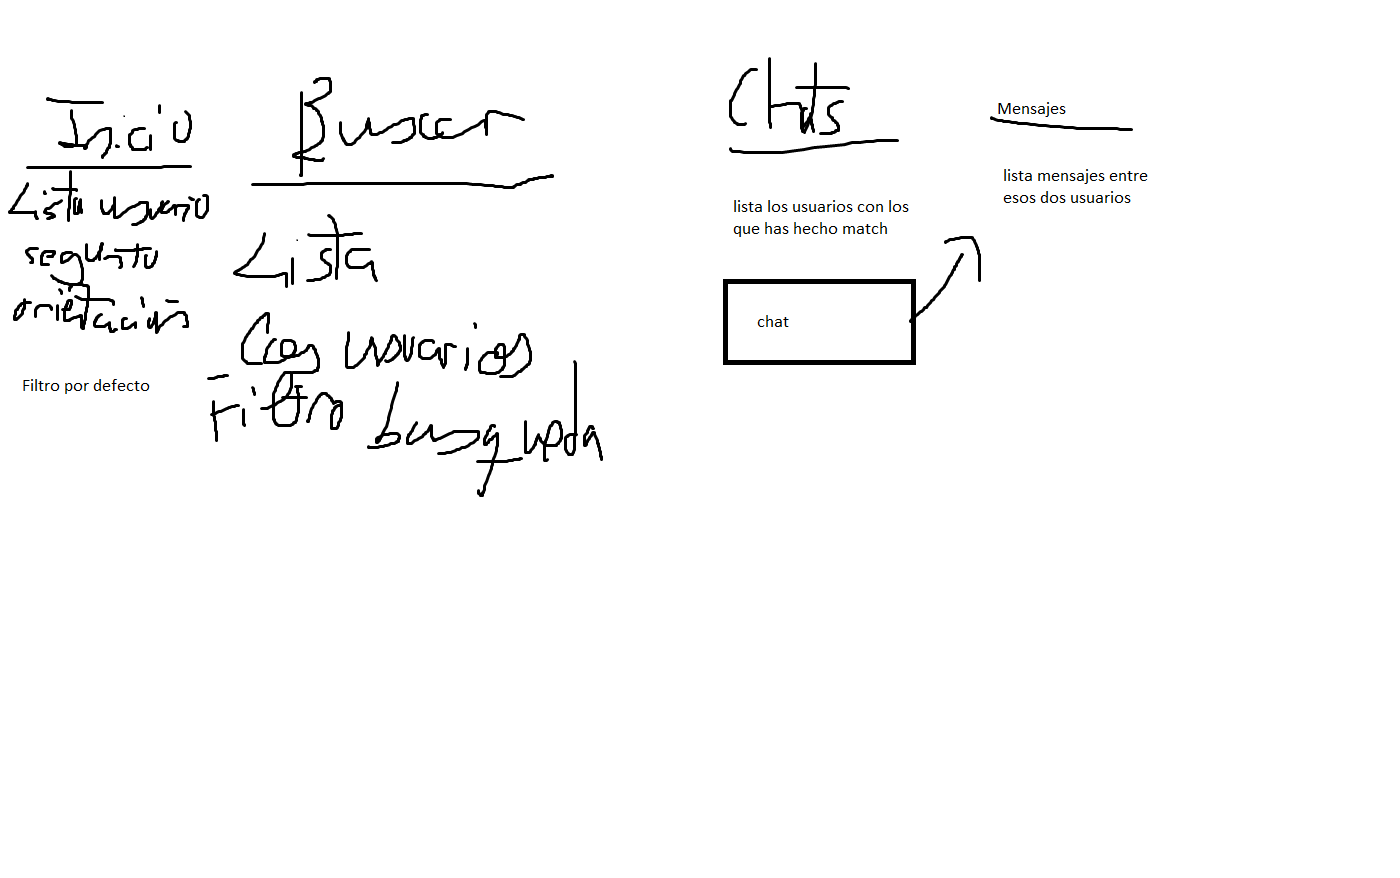 Inicio
Lista usuario
segun tu
orientación
Filtro por defecto
Buscar
Lista
Con usuarios
Filtro busqueda
Chats
lista los usuarios con los
que has hecho match
chat
Mensajes
lista mensajes entre
esos dos usuarios